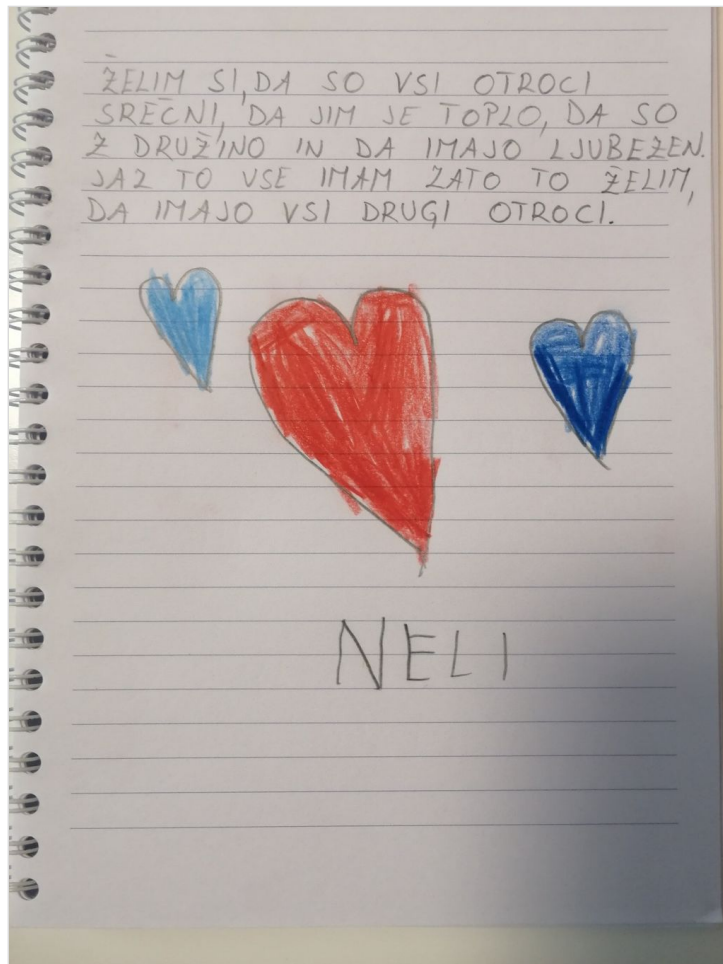 ŽELIM SI, DA SO VSI OTROCI
SREČNI, DA JIM JE TOPLO, DA SO
Z DRUŽINO IN DA IMAJO LJUBEZEN.
JAZ TO VSE IMAM ZATO TO ŽELIM,
DA IMAJO VSI DRUGI OTROCI.
NELI